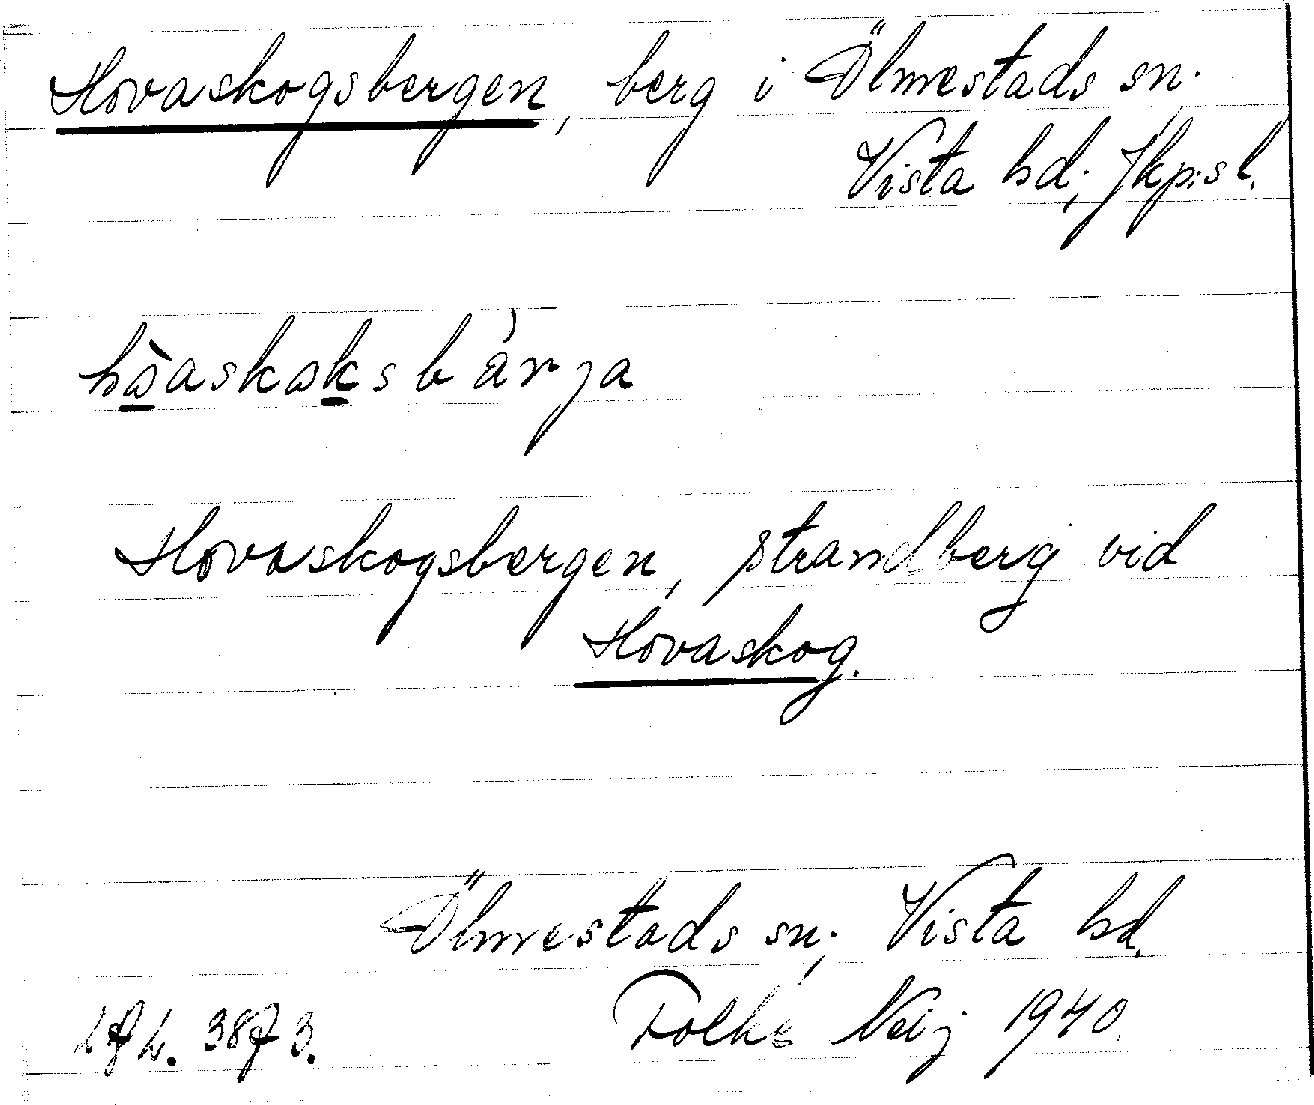 Hovaskogsbergen, berg i Ölmestads sn.
Vista hd; Jkp:s l.
hàaskaksbárja
Hovaskogsbergen, strandberg vid
Hovaskog.
Ölmestads sn; Vista hd.
Folke Neij 1940.
3873.